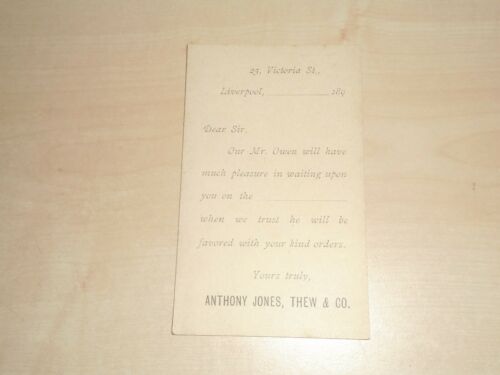 25, Victoria St.,
Liverpool, 189
Dear Sir,
Our Mr. Owen will have
much pleasure in waiting upon
you on the
when we trust he will be
favored with your kind orders.
Yours truly,
ANTHONY JONES, THEW & CO.